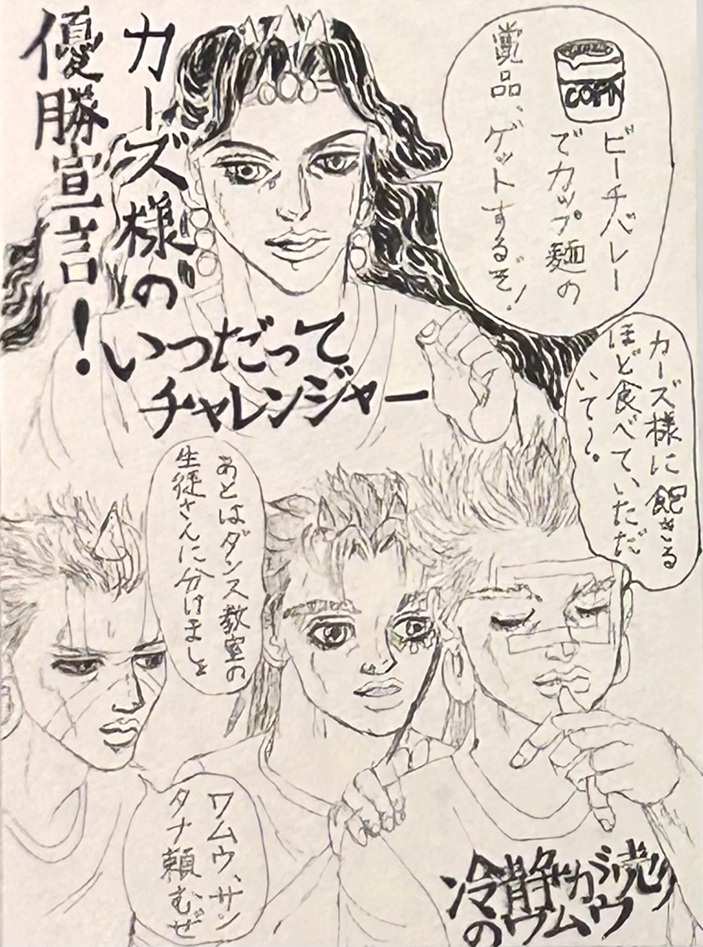 カーズ様の
優勝宣言!
いつだって
チャレンジャー
CORN
ビーチバレー
でカップ麺の
賞品、ゲットするぞ!
カーズ様に飽きる
ほど食べていただ
いて〜。
あとはダンス教室の
生徒さんに分けましょ
ワムウ、サン
タナ頼むぜ
冷静が売り
のワムウ